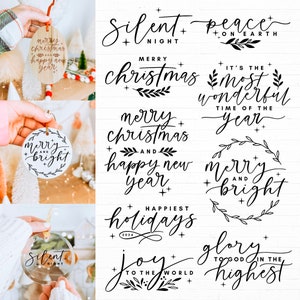 merry
christmas
and
happy new
year
merry
AND
bright
Silent
NIGHT
silent
NIGHT
peace
ON EARTH
MERRY
christmas
IT'S THE
most
wonderful
TIME OF THE YEAR
merry
christmas
AND
happy new
year
merry
AND
bright
HAPPIEST
holidays
2024
glory
TO GOD IN THE
highest
joy
TO THE WORLD